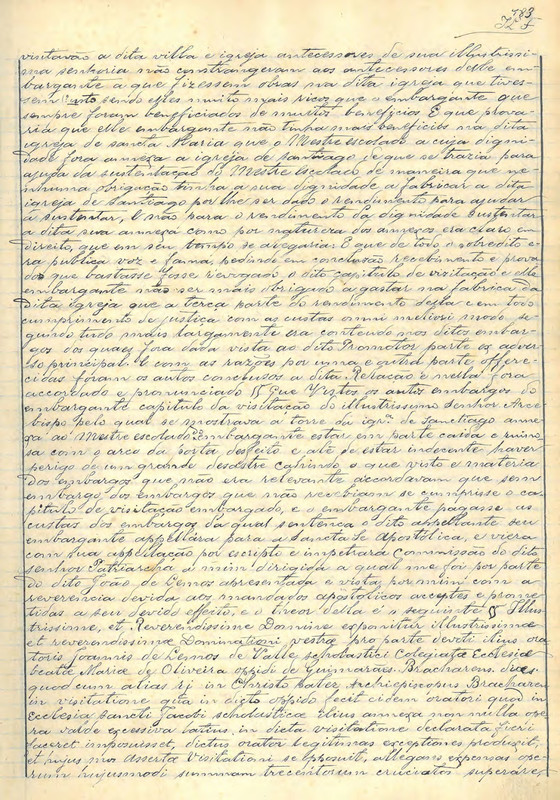 783
visitavão a dita villa e igreja antecessores de sua illustrissi-
ma senhoria não constrangeram aos antecessores delle em-
bargante a que fizessem obras na dita igreja que tives-
sem custo sendo elles muito mais ricos que o embargante que
sempre foram beneficiados de muitos beneficios E que prova-
ria que elle embargante não tinha mais beneficios na dita
igreja de sancta Maria que o Mestre escolado a cuja digni-
dade fora annexa a igreja de Santiago e que se trazia para
ajuda da sustentação do Mestre escolado de maneira que ne-
nhuma obrigação tinha a sua dignidade a fabricar a dita
igreja de Santiago por lhe ser dado o rendimento para ajudar
a sustentar, E não para o rendimento da dignidade sustentar
a dita sua annexa como por natureza dos annexos era claro em
direito, que em seu tempo se alegaria: E que de todo o sobredito e-
ra publica voz e fama, pedindo em conclusão recebimento e prova
do que bastasse fosse revogado o dito capitulo de vizitação e elle
embargante não ser mais obrigado a gastar na fabrica da
dita igreja que a terça parte do rendimento della e em todo
cumprimento de justiça com as custas omni meliori modo se-
gundo tudo mais largamente era contendo nos ditos embar-
gos dos quaes fora dada vista ao dito Promotor parte ex adver-
so principal. E com as razões por uma e outra parte offere-
cidas foram os autos conclusos a dita Relação e nella fora
accordado e pronunciado Que Vistos os autos embargos do
embargante capitulo da visitação do illustrissimo senhor Arce-
bispo pelo qual se mostrava a torre da igr.ª de Santiago anne-
xa ao Mestre escolado Embargante estar em parte caida e ruino-
sa com o arco da porta desfeito e até de estar indecente haver
perigo de um grande desastre cahindo o que visto e materia
dos embargos que não era relevante accordavam que sem
embargo dos embargos que não recebiam se cumprisse o ca-
pitulo de visitação embargado, e o embargante pagasse as
custas dos embargos da qual sentença o dito appellante seu
embargante appellára para a Sancta Sé Apostolica, e viera
com sua appellação por escripto e impetrára Commissão do dito
senhor Patriarcha a mim dirigida a qual me foi por parte
do dito João de Lemos apresentada e vista por mim com a
reverencia devida aos mandados apostolicos acceptei e prome-
tidas a seu devido effeito, e o theor della é o seguinte Illus-
trissime, et Reverendissime Domine exponitur illustrissimæ
et reverendissimæ Dominationi vestræ pro parte devoti illius ora-
toris Joannis de Lemos de Valle scholastici Colegiatæ Ecclesiæ
beatæ Mariæ de Oliveira oppidi de Guimarães Bracharens. diæs
quod cum alias rj in Christo pater Archiepiscopus Bracharen
in visitatione gta in dicto oppido fecit eidem oratori quod in
Ecclesia sancti Jacobi scholasticæ illius annexa non nulla ope-
ra valde excessiva latius in dicta visitatione declarata fieri
faceret imposuisset, dictus orator legitimas exceptiones produxit,
et hujus mos asserta visitationi se opposuit, allegans expensas ope-
rum hujusmodi summam trecentorum cruciatos superare,